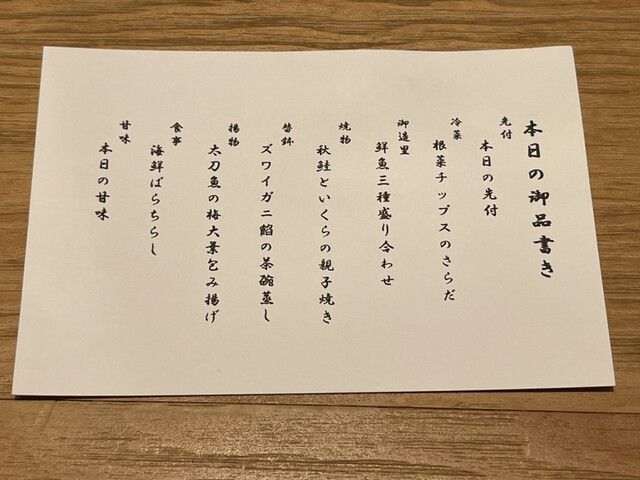 本日の御品書き
先付
本日の先付
冷菜
根菜チップスのさらだ
御造里
鮮魚三種盛り合わせ
焼物
秋鮭といくらの親子焼き
替鉢
ズワイガニ餡の茶碗蒸し
揚物
太刀魚の梅大葉包み揚げ
食事
海鮮ばらちらし
甘味
本日の甘味